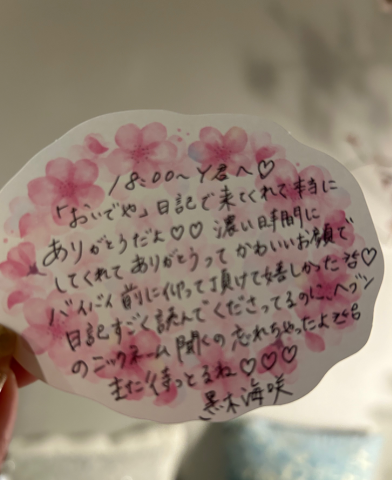 18:00〜Y君へ♡
「おいでや」日記で来てくれて本当に
ありがとうだよ♡♡ 濃い時間に
してくれてありがとうって かわいいお顔で
バイバイ前に仰って頂けて嬉しかった♡
日記すごく読んでくださってるのに、ヘブン
のニックネーム聞くの忘れちゃったよ
また待っとるね♡♡♡
黒木海咲